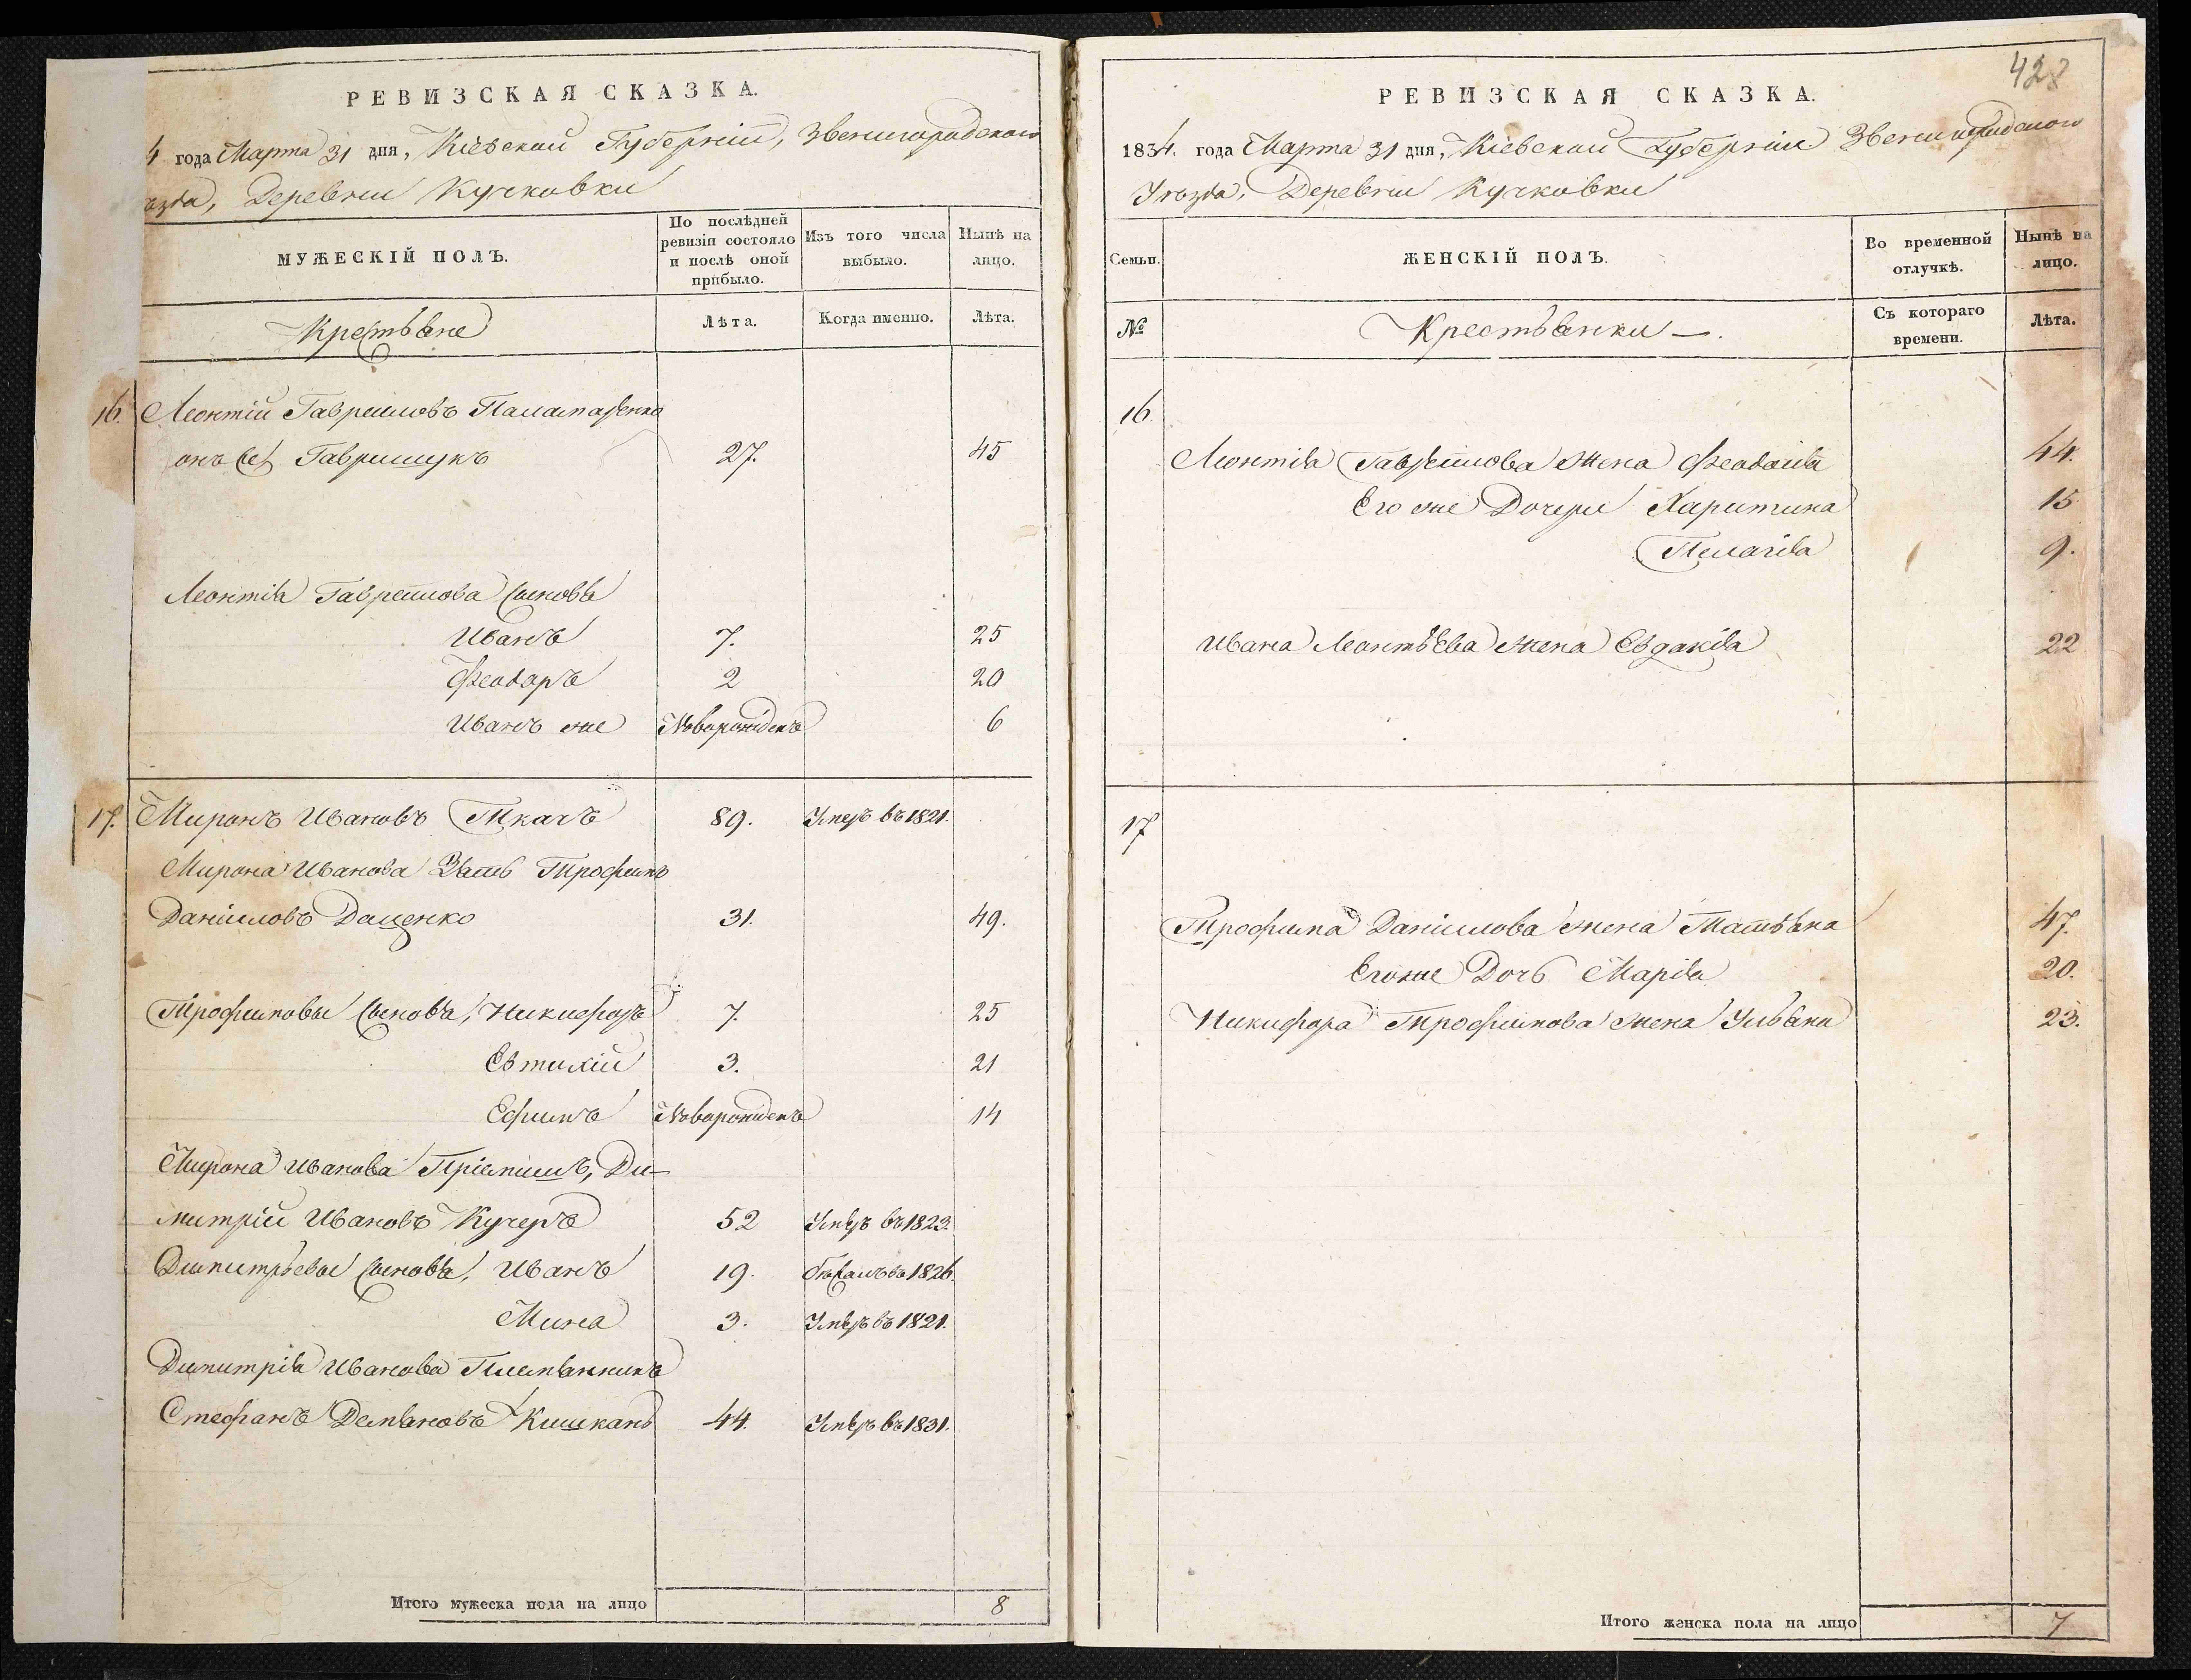 РЕВИЗСКАЯ СКАЗКА.
4 года Марта 31 дня, Кіевской Губерніи, Звенигородскаго
ѣзда, Деревни Кучковки
МУЖЕСКІЙ ПОЛЪ.
По послѣдней ревизіи состояло и послѣ оной прибыло.
Изъ того числа выбыло.
Нынѣ на лицо.
Крестьяне
Лѣта.
Когда именно.
Лѣта.
16. Леонтій Гавриловъ Паламаренко
онъ же Гаврищукъ 27. 45
Леонтія Гаврилова сыновья
Иванъ 7. 25
Феодоръ 2 20
Иванъ же Новорожденъ 6
17. Миронъ Ивановъ Ткачъ 89. Умеръ въ 1821.
Мирона Иванова Зять Трофимъ
Даніиловъ Даценко 31. 49.
Трофимовы сыновья, Никифоръ 7. 25
Евтихій 3. 21
Ефимъ Новорожденъ 14
Мирона Иванова Пріимышъ, Ди-
митрій Ивановъ Кучеръ 52 Умеръ въ 1823.
Димитріевы сыновья, Иванъ 19. Бѣжалъ въ 1826.
Мина 3. Умеръ въ 1821.
Димитрія Иванова Племянникъ
Стефанъ Демьяновъ Кишкань 44. Умеръ въ 1831.
Итого мужеска пола на лицо 8
428
РЕВИЗСКАЯ СКАЗКА.
1834. года Марта 31 дня, Кіевской Губерніи Звенигородскаго
Уѣзда, Деревни Кучковки
Семьи.
ЖЕНСКІЙ ПОЛЪ.
Во временной отлучкѣ.
Нынѣ на лицо.
№
Крестьянки.
Съ котораго времени.
Лѣта.
16.
Леонтія Гаврилова Жена Феодосія 44.
Его же Дочери Харитина 15
Пелагія 9.
Ивана Леонтьева Жена Евдокія 22
17
Трофима Даніилова Жена Татьяна 47.
Его же Дочь Марія 20.
Никифора Трофимова Жена Ульяна 23.
Итого женска пола на лицо 7